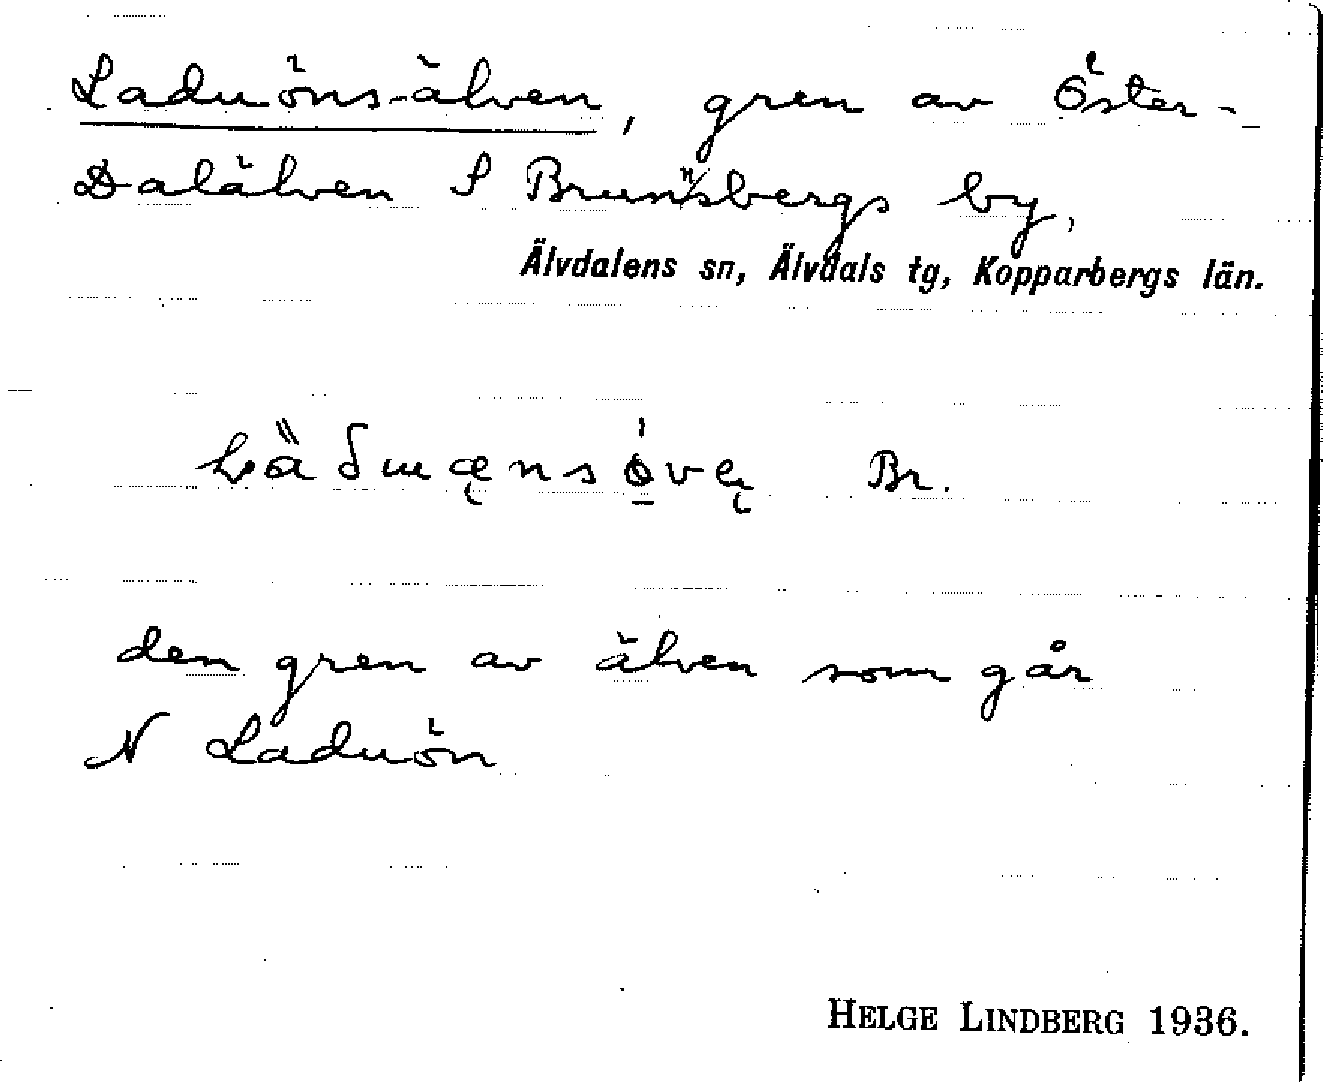 Laduöns-älven, gren av Öster-
Dalälven S Brunnsbergs by,
Älvdalens sn, Älvdals tg, Kopparbergs län.
Br.
den gren av älven som går
N Laduön
HELGE LINDBERG 1936.